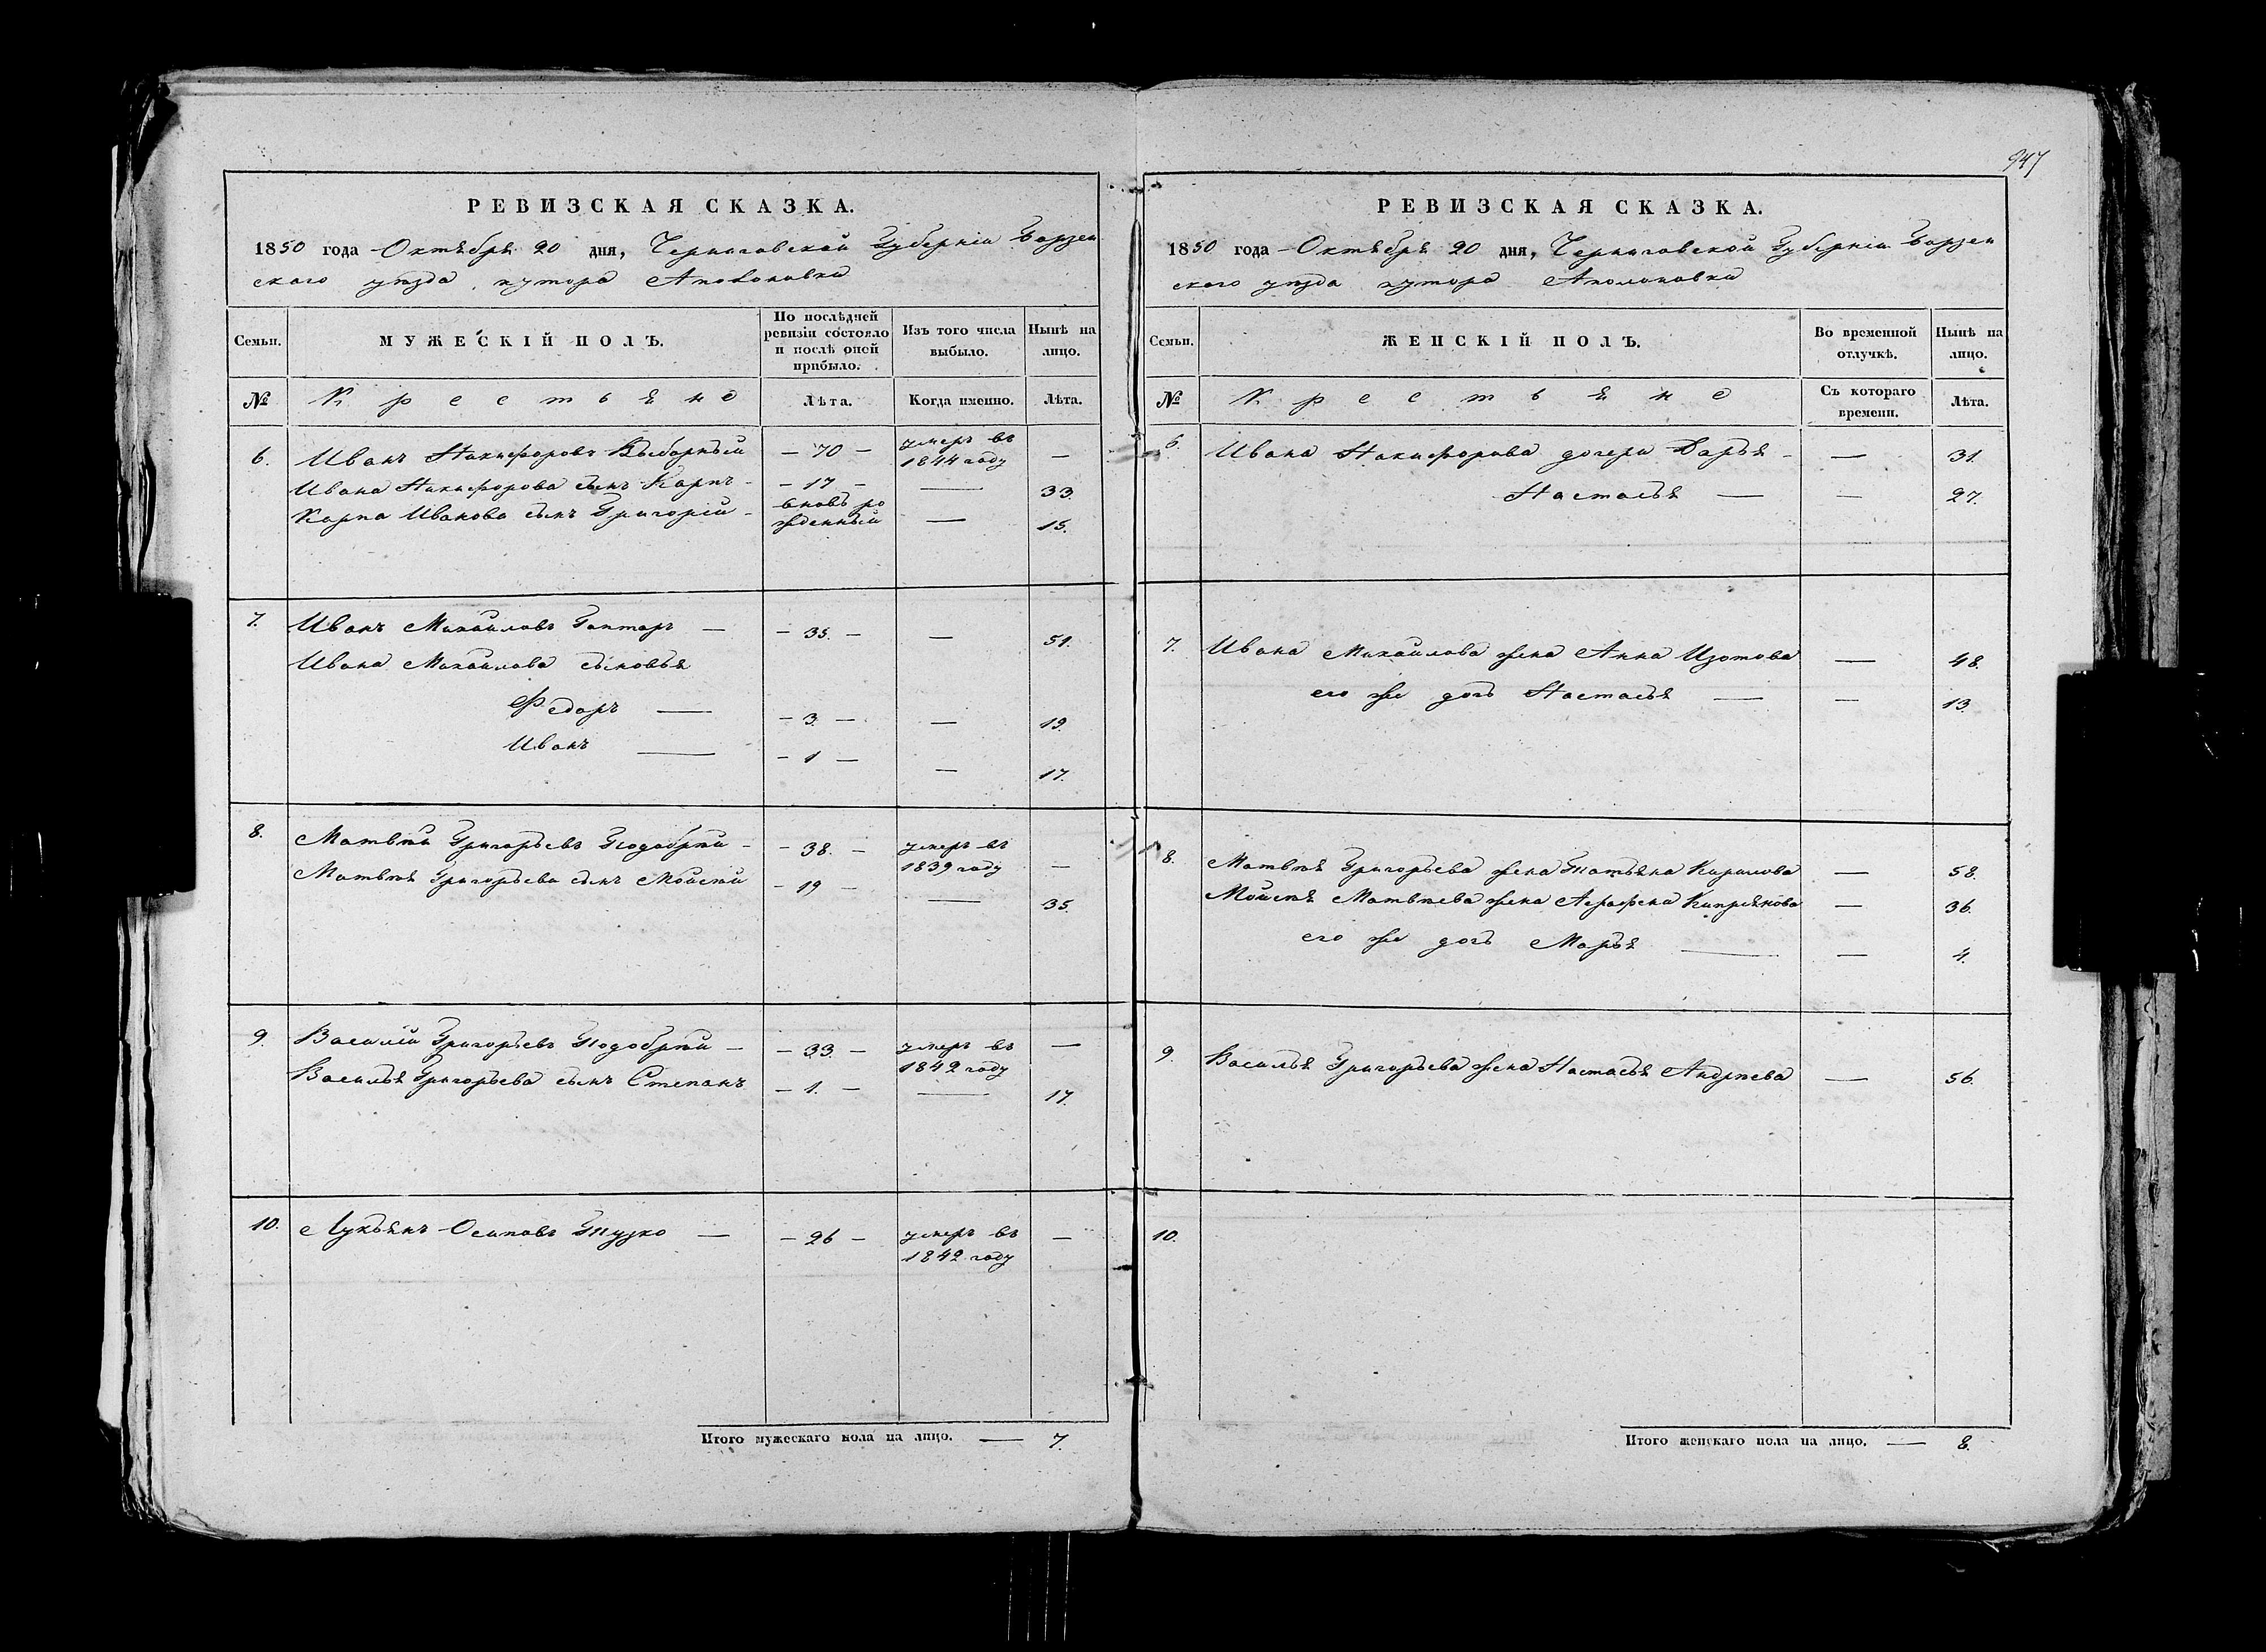 947
РЕВИЗСКАЯ СКАЗКА.
1850 года Октября 20 дня, Черниговской Губерніи Борзен
ского уѣзда хутора Аполоновки
Семьи. МУЖЕСКІЙ ПОЛЪ. По послѣдней ревизіи состояло и послѣ оной прибыло. Изъ того числа выбыло. Нынѣ на лицо.
№ Крестьяне Лѣта. Когда именно. Лѣта.
6. Иванъ Никифоровъ Выборный — 70 — умеръ въ 1844 году —
Ивана Никифорова сынъ Карпъ — 17 — — 33.
Карпа Иванова сынъ Григорій — вновь рожденный — 15.
7. Иванъ Михайловъ Гонтарь — — 35. — — 51.
Ивана Михайлова сыновья
Федоръ — — 3. — — 19.
Иванъ — — 1 — — 17.
8. Матвѣй Григорьевъ Подобрѣй — — 38. — умеръ въ 1839 году —
Матвѣя Григорьева сынъ Мойсѣй — 19 — — 35.
9. Василій Григорьевъ Подобрѣй — — 33. — умеръ въ 1842 году —
Василья Григорьева сынъ Степанъ — 1. — — 17.
10. Лукьянъ Осиповъ Пузко — — 26 — умеръ въ 1842 году —
Итого мужескаго пола на лицо. — 7.
РЕВИЗСКАЯ СКАЗКА.
1850 года Октября 20 дня, Черниговской Губерніи Борзен
ского уѣзда хутора Аполоновки
Семьи. ЖЕНСКІЙ ПОЛЪ. Во временной отлучкѣ. Нынѣ на лицо.
№ Крестьяне Съ котораго времени. Лѣта.
6. Ивана Никифорова дочери Дарья — — 31.
Настасья — — 27.
7. Ивана Михайлова жена Анна Изотова — 48.
его же дочь Настасья — — 13.
8. Матвѣя Григорьева жена Татьяна Кирилова — 58.
Мойсѣя Матвѣева жена Аграфена Кипріянова — 36.
его же дочь Марья — — 4.
9. Василья Григорьева жена Настасья Андрѣева — 56.
10.
Итого женскаго пола на лицо. — 8.